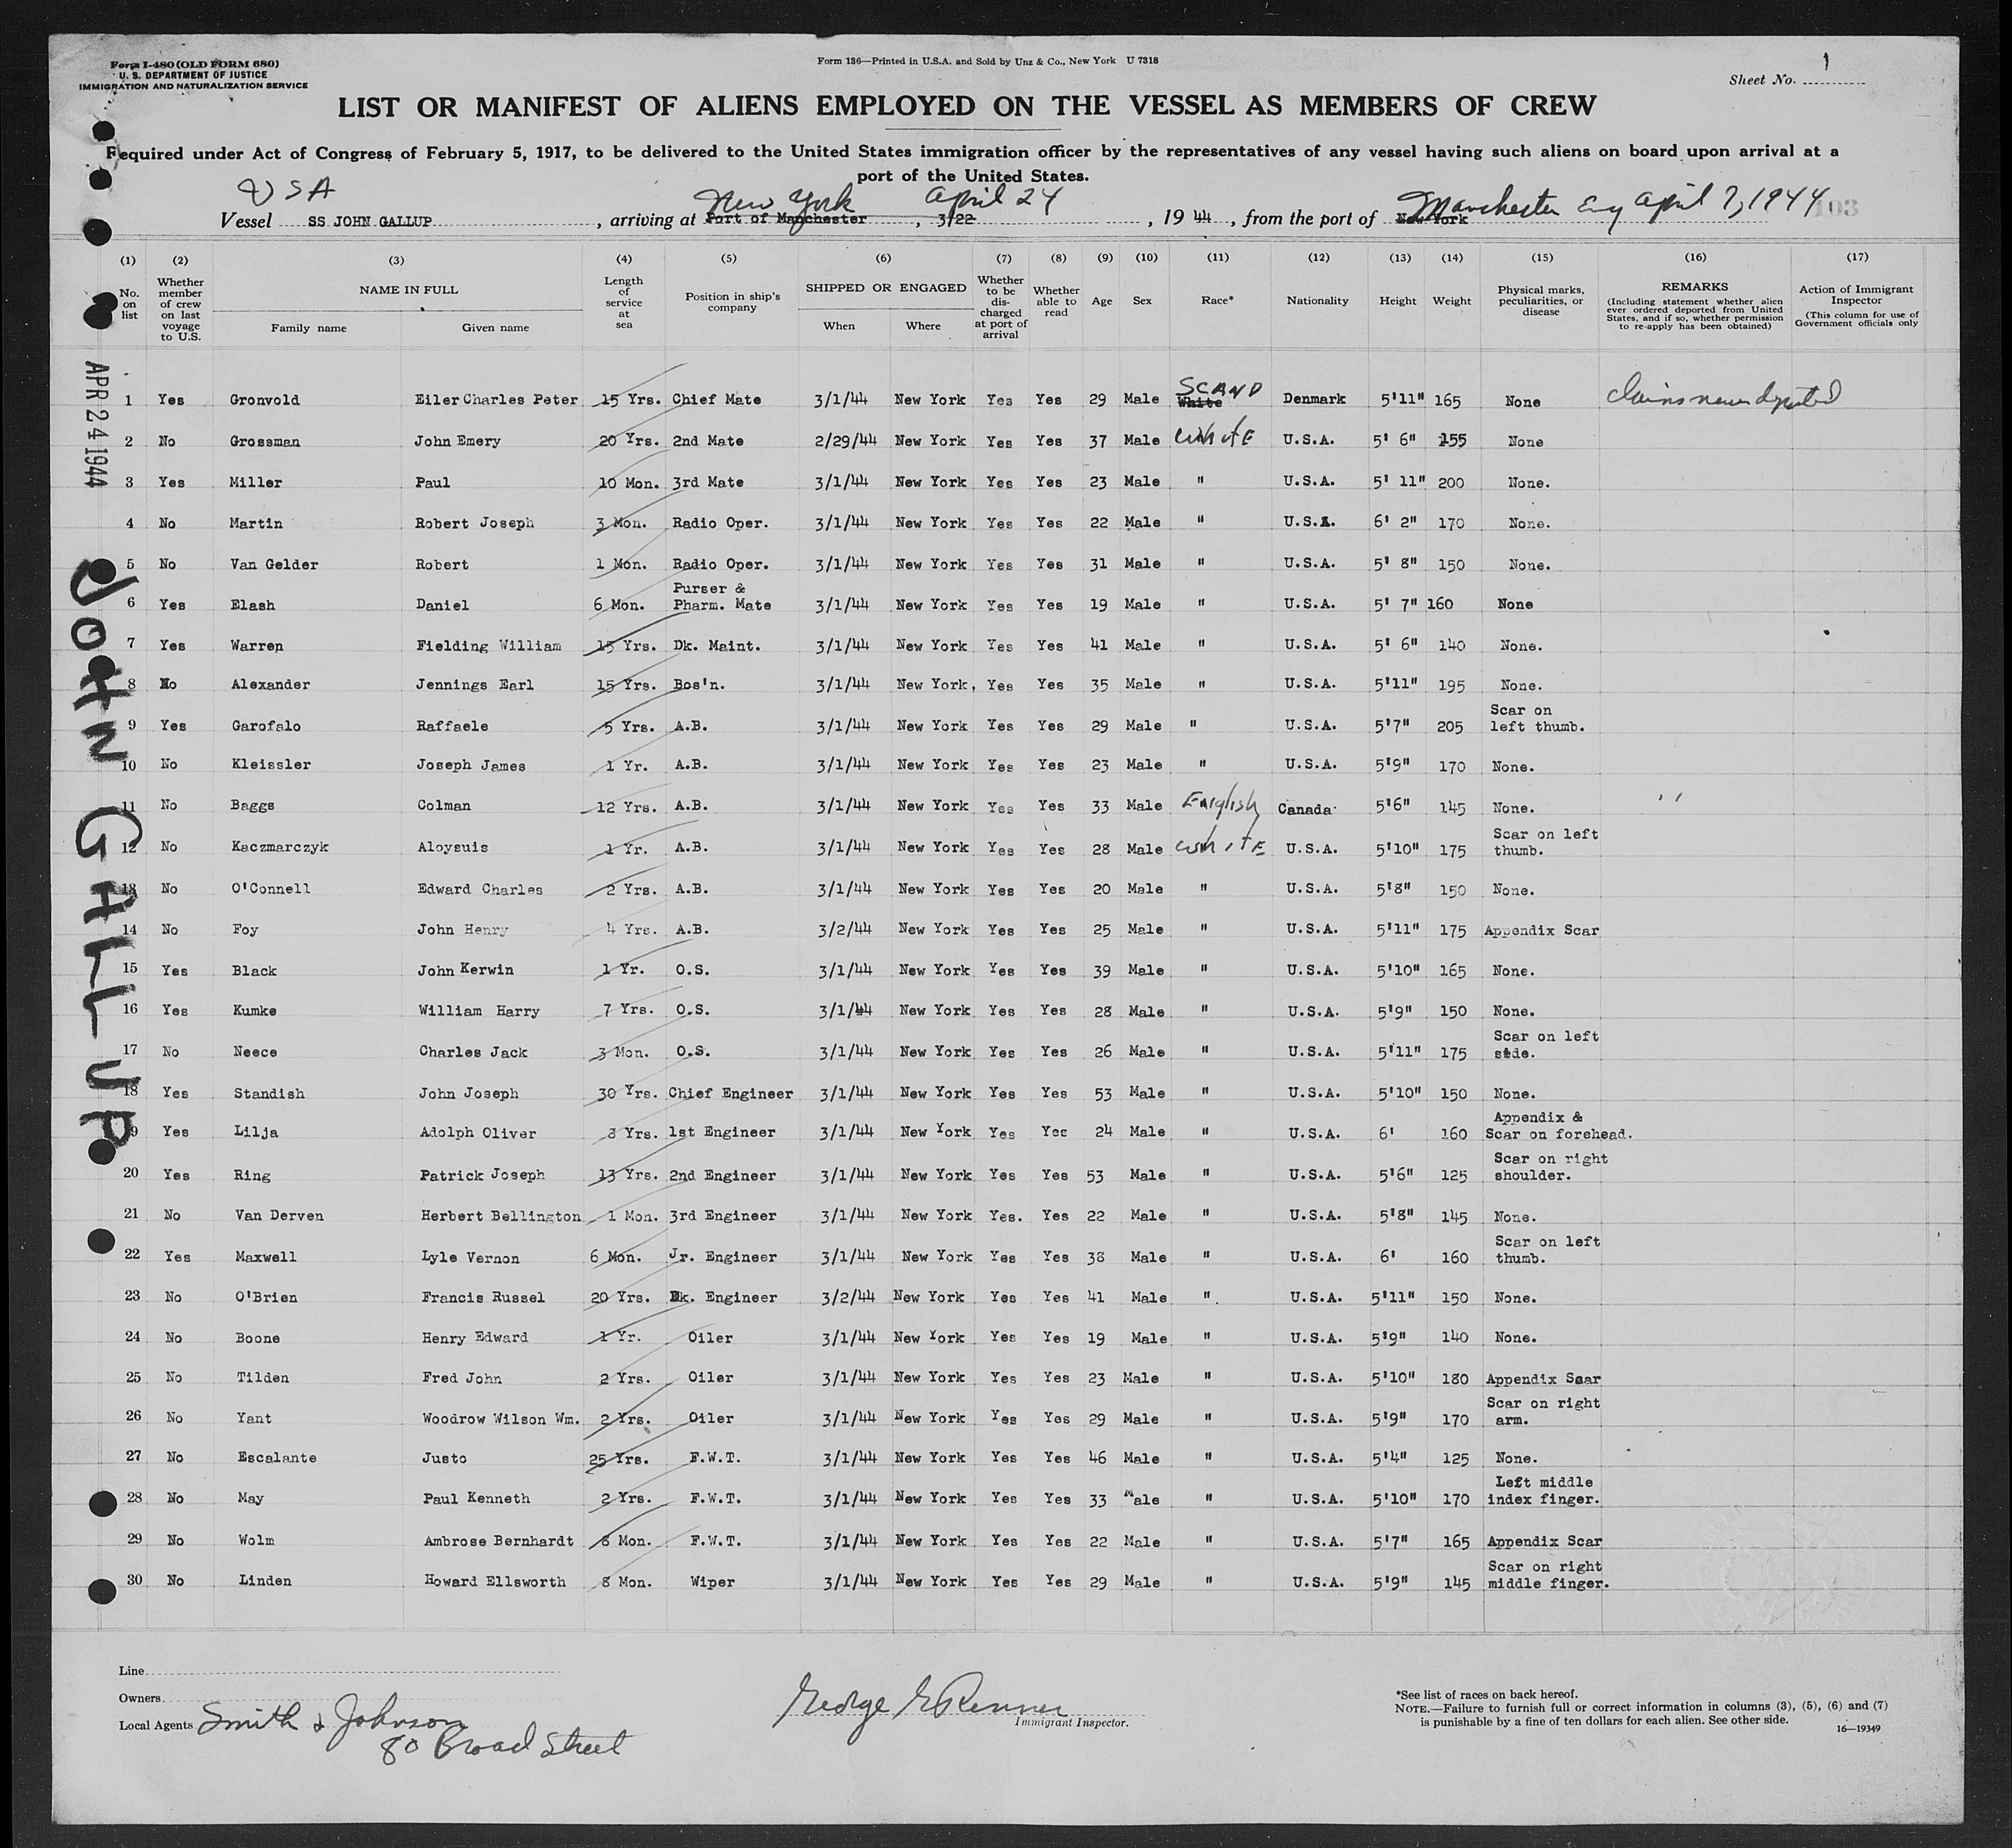 Form I-480 (OLD FORM 680)
U. S. DEPARTMENT OF JUSTICE
IMMIGRATION AND NATURALIZATION SERVICE
Form 136—Printed in U.S.A. and Sold by Unz & Co., New York U 7318
Sheet No. 1
LIST OR MANIFEST OF ALIENS EMPLOYED ON THE VESSEL AS MEMBERS OF CREW
Required under Act of Congress of February 5, 1917, to be delivered to the United States immigration officer by the representatives of any vessel having such aliens on board upon arrival at a
port of the United States.
USA New York April 24 Manchester Eng April 7, 1944
Vessel SS JOHN GALLUP, arriving at Port of Manchester, 3/22, 19 44, from the port of New York 103
(1) (2) (3) (4) (5) (6) (7) (8) (9) (10) (11) (12) (13) (14) (15) (16) (17)
No. on list
Whether member of crew on last voyage to U.S.
NAME IN FULL
Family name Given name
Length of service at sea
Position in ship's company
SHIPPED OR ENGAGED
When Where
Whether to be discharged at port of arrival
Whether able to read
Age
Sex
Race*
Nationality
Height
Weight
Physical marks, peculiarities, or disease
REMARKS
(Including statement whether alien ever ordered deported from United States, and if so, whether permission to re-apply has been obtained)
Action of Immigrant Inspector
(This column for use of Government officials only
APR 24 1944
JOHN GALLUP
1 Yes Gronvold Eiler Charles Peter 15 Yrs. Chief Mate 3/1/44 New York Yes Yes 29 Male White SCAND Denmark 5'11" 165 None Claims never deported
2 No Grossman John Emery 20 Yrs. 2nd Mate 2/29/44 New York Yes Yes 37 Male White U.S.A. 5' 6" 155 None
3 Yes Miller Paul 10 Mon. 3rd Mate 3/1/44 New York Yes Yes 23 Male " U.S.A. 5' 11" 200 None.
4 No Martin Robert Joseph 3 Mon. Radio Oper. 3/1/44 New York Yes Yes 22 Male " U.S.A. 6' 2" 170 None.
5 No Van Gelder Robert 1 Mon. Radio Oper. 3/1/44 New York Yes Yes 31 Male " U.S.A. 5' 8" 150 None.
6 Yes Elash Daniel 6 Mon. Purser & Pharm. Mate 3/1/44 New York Yes Yes 19 Male " U.S.A. 5' 7" 160 None
7 Yes Warren Fielding William 15 Yrs. Dk. Maint. 3/1/44 New York Yes Yes 41 Male " U.S.A. 5' 6" 140 None.
8 No Alexander Jennings Earl 15 Yrs. Bos'n. 3/1/44 New York, Yes Yes 35 Male " U.S.A. 5'11" 195 None.
9 Yes Garofalo Raffaele 5 Yrs. A.B. 3/1/44 New York Yes Yes 29 Male " U.S.A. 5'7" 205 Scar on left thumb.
10 No Kleissler Joseph James 1 Yr. A.B. 3/1/44 New York Yes Yes 23 Male " U.S.A. 5'9" 170 None.
11 No Baggs Colman 12 Yrs. A.B. 3/1/44 New York Yes Yes 33 Male English Canada 5'6" 145 None. ' '
12 No Kaczmarczyk Aloysuis 1 Yr. A.B. 3/1/44 New York Yes Yes 28 Male White U.S.A. 5'10" 175 Scar on left thumb.
13 No O'Connell Edward Charles 2 Yrs. A.B. 3/1/44 New York Yes Yes 20 Male " U.S.A. 5'8" 150 None.
14 No Foy John Henry 4 Yrs. A.B. 3/2/44 New York Yes Yes 25 Male " U.S.A. 5'11" 175 Appendix Scar
15 Yes Black John Kerwin 1 Yr. O.S. 3/1/44 New York Yes Yes 39 Male " U.S.A. 5'10" 165 None.
16 Yes Kumke William Harry 7 Yrs. O.S. 3/1/44 New York Yes Yes 28 Male " U.S.A. 5'9" 150 None.
17 No Neece Charles Jack 3 Mon. O.S. 3/1/44 New York Yes Yes 26 Male " U.S.A. 5'11" 175 Scar on left side.
18 Yes Standish John Joseph 30 Yrs. Chief Engineer 3/1/44 New York Yes Yes 53 Male " U.S.A. 5'10" 150 None.
9 Yes Lilja Adolph Oliver 3 Yrs. 1st Engineer 3/1/44 New York Yes Yes 24 Male " U.S.A. 6' 160 Appendix & Scar on forehead.
20 Yes Ring Patrick Joseph 13 Yrs. 2nd Engineer 3/1/44 New York Yes Yes 53 Male " U.S.A. 5'6" 125 Scar on right shoulder.
21 No Van Derven Herbert Bellington 1 Mon. 3rd Engineer 3/1/44 New York Yes. Yes 22 Male " U.S.A. 5'8" 145 None.
22 Yes Maxwell Lyle Vernon 6 Mon. Jr. Engineer 3/1/44 New York Yes Yes 38 Male " U.S.A. 6' 160 Scar on left thumb.
23 No O'Brien Francis Russel 20 Yrs. Dk. Engineer 3/2/44 New York Yes Yes 41 Male " U.S.A. 5'11" 150 None.
24 No Boone Henry Edward 1 Yr. Oiler 3/1/44 New York Yes Yes 19 Male " U.S.A. 5'9" 140 None.
25 No Tilden Fred John 2 Yrs. Oiler 3/1/44 New York Yes Yes 23 Male " U.S.A. 5'10" 180 Appendix Scar
26 No Yant Woodrow Wilson Wm. 2 Yrs. Oiler 3/1/44 New York Yes Yes 29 Male " U.S.A. 5'9" 170 Scar on right arm.
27 No Escalante Justo 25 Yrs. F.W.T. 3/1/44 New York Yes Yes 46 Male " U.S.A. 5'4" 125 None.
28 No May Paul Kenneth 2 Yrs. F.W.T. 3/1/44 New York Yes Yes 33 Male " U.S.A. 5'10" 170 Left middle index finger.
29 No Wolm Ambrose Bernhardt 8 Mon. F.W.T. 3/1/44 New York Yes Yes 22 Male " U.S.A. 5'7" 165 Appendix Scar
30 No Linden Howard Ellsworth 8 Mon. Wiper 3/1/44 New York Yes Yes 29 Male " U.S.A. 5'9" 145 Scar on right middle finger.
Line
Owners
Local Agents Smith & Johnson
80 Broad Street
George E Renner
Immigrant Inspector.
*See list of races on back hereof.
NOTE.—Failure to furnish full or correct information in columns (3), (5), (6) and (7)
is punishable by a fine of ten dollars for each alien. See other side.
16—19349